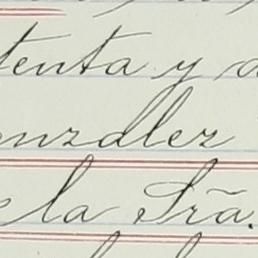 tenta y d
onzalez
e la Srã.